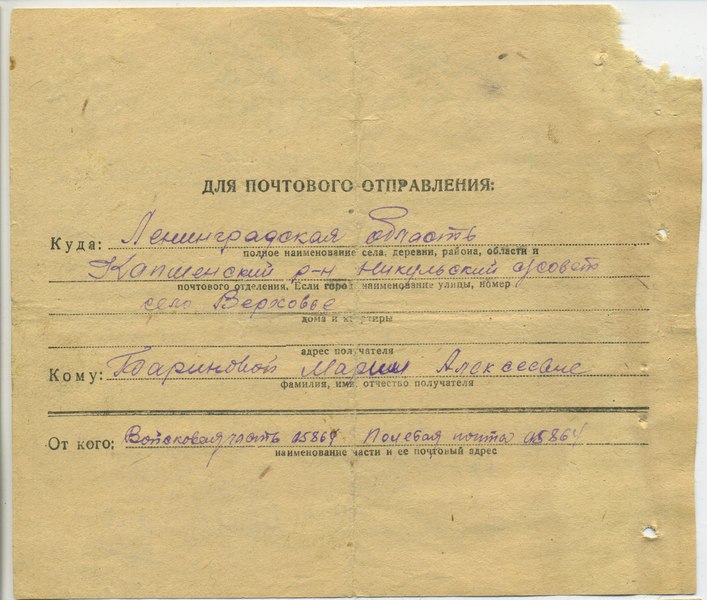 ДЛЯ ПОЧТОВОГО ОТПРАВЛЕНИЯ:
Куда: Ленинградская область
полное наименование села, деревни, района, области и
Капшенский р-н Никульский с/совет
почтового отделения. Если город, наименование улицы, номер
село Верховье
дома и квартиры
адрес получателя
Кому: Бариновой Марии Алексеевне
фамилия, имя, отчество получателя
От кого: Войсковая часть 05864 Полевая почта 05864
наименование части и ее почтовый адрес